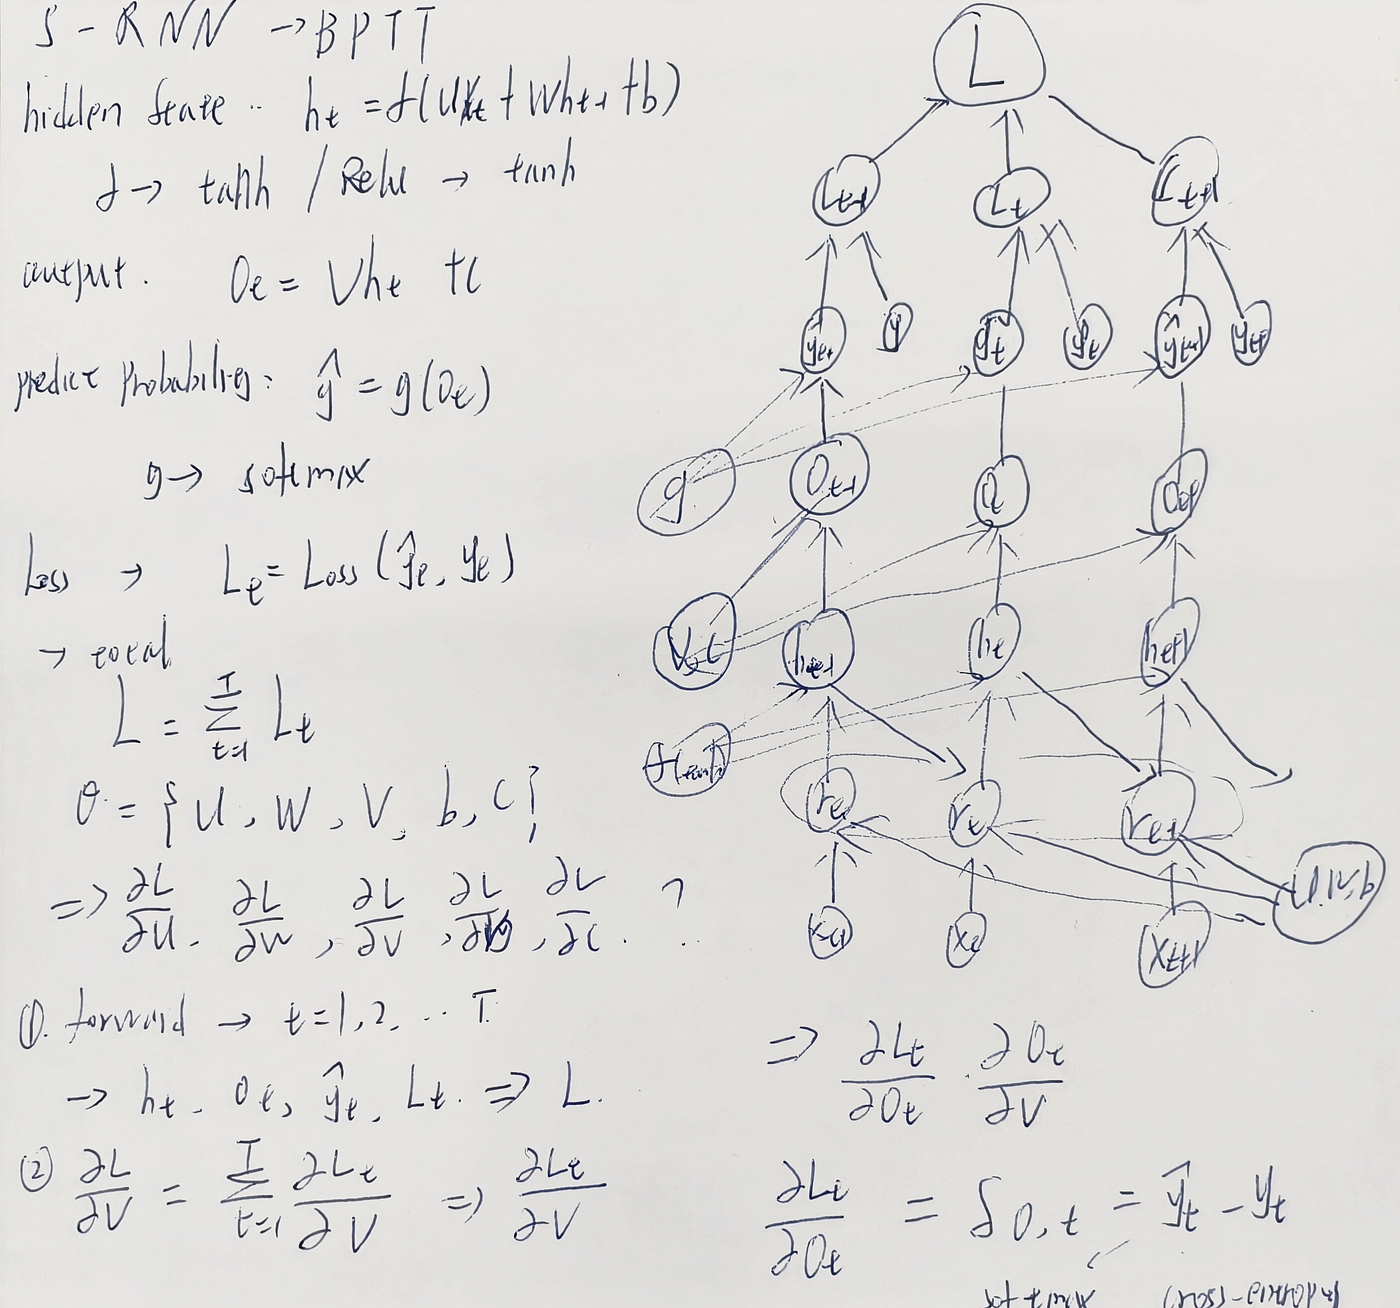 S-RNN → BPTT
hidden state .. h_t = f(Ux_t + Wh_t-1 + b)
f → tanh / Relu → tanh
output. O_t = Vh_t + c
predict probabilities: ŷ = g(O_t)
g → softmax
Loss → L_t = Loss(ŷ_t, y_t)
→ total
L = Σ_{t=1}^{T} L_t
θ = {U, W, V, b, c}
=> ∂L/∂U, ∂L/∂W, ∂L/∂V, ∂L/∂b, ∂L/∂c. ?
①. forward → t=1,2, ... T
→ h_t, O_t, ŷ_t, L_t. => L.
② ∂L/∂V = Σ_{t=1}^{T} ∂L_t/∂V => ∂L_t/∂V
L
L_t-1 L_t L_t+1
ŷ_t-1 y ŷ_t y_t ŷ_t+1 y_t+1
g O_t-1 O_t O_t+1
V,c h_t-1 h_t h_t+1
f(tanh)
r_t r_t r_t+1
U,W,b
x_t-1 x_t x_t+1
=> ∂L_t/∂O_t · ∂O_t/∂V
∂L_t/∂O_t = δ_O,t = ŷ_t - y_t
softmax cross-entropy